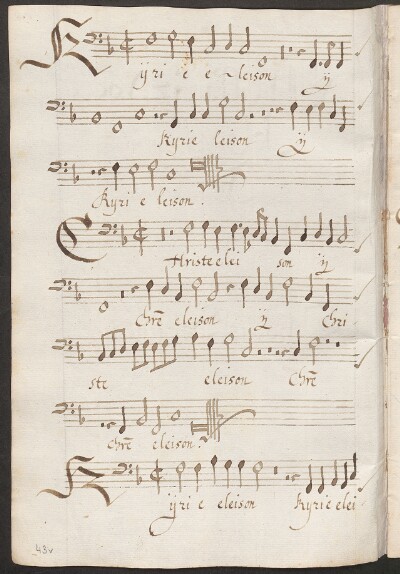 Kÿri e e leison ÿ
Kyrie leison ÿ
Kyri e leison.
Christe elei son ÿ
Chrẽ eleison ÿ Chri
ste eleison Chrẽ
chrẽ eleison.
Kÿri e eleison Kyrie elei
43v